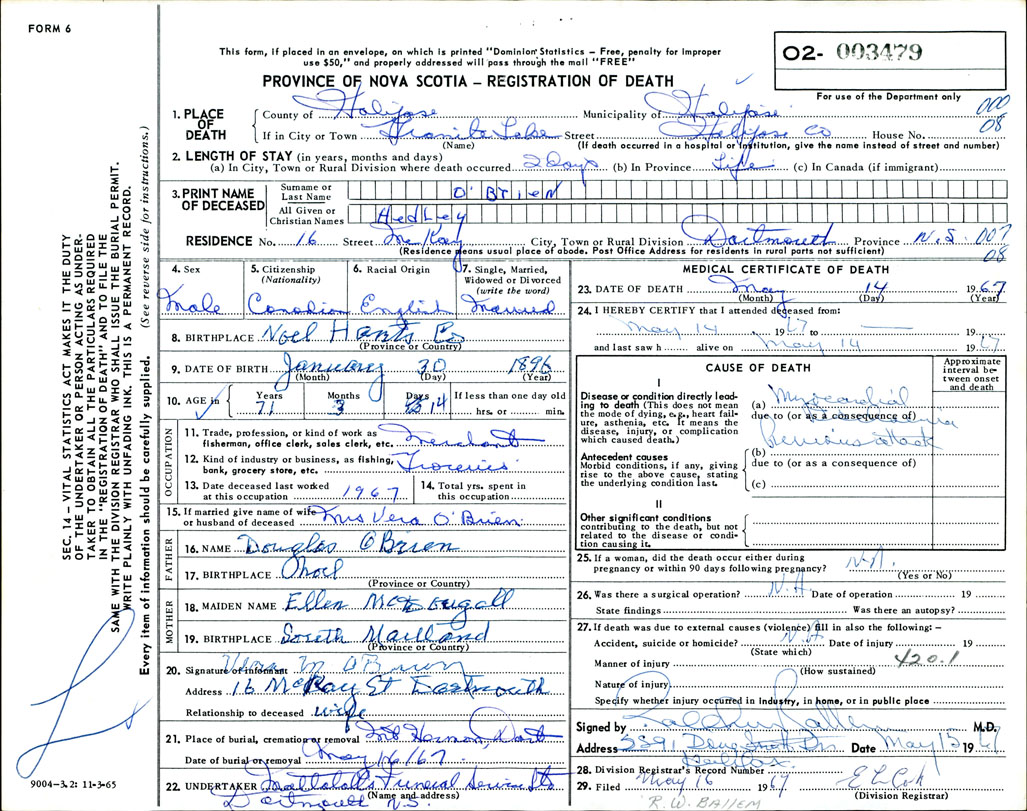 FORM 6
This form, if placed in an envelope, on which is printed "Dominion Statistics – Free, penalty for improper
use $50," and properly addressed will pass through the mail "FREE"
O2- 003479
For use of the Department only
PROVINCE OF NOVA SCOTIA – REGISTRATION OF DEATH
000
08
1. PLACE OF DEATH
County of Halifax Municipality of Halifax
If in City or Town Lake Street Halifax Co House No.
(Name) (If death occurred in a hospital or institution, give the name instead of street and number)
2. LENGTH OF STAY (in years, months and days)
(a) In City, Town or Rural Division where death occurred 2 Days (b) In Province Life (c) In Canada (if immigrant)
3. PRINT NAME OF DECEASED
Surname or Last Name O'BrieN
All Given or Christian Names HedLey
RESIDENCE No. 16 Street McKay City, Town or Rural Division Dartmouth Province N.S. 007
08
(Residence means usual place of abode. Post Office Address for residents in rural parts not sufficient)
4. Sex
Male
5. Citizenship (Nationality)
Canadian
6. Racial Origin
English
7. Single, Married, Widowed or Divorced (write the word)
Married
8. BIRTHPLACE Noel Hants Co
(Province or Country)
9. DATE OF BIRTH January 30 1896
(Month) (Day) (Year)
10. AGE in Years Months Days If less than one day old
71 3 14 hrs. or min.
OCCUPATION
11. Trade, profession, or kind of work as fisherman, office clerk, sales clerk, etc. Merchant
12. Kind of industry or business, as fishing, bank, grocery store, etc. Groceries
13. Date deceased last worked at this occupation 1967
14. Total yrs. spent in this occupation
15. If married give name of wife or husband of deceased Mrs Vera O'Brien
FATHER
16. NAME Douglas O'Brien
17. BIRTHPLACE Noel
(Province or Country)
MOTHER
18. MAIDEN NAME Ellen McDougall
19. BIRTHPLACE South Maitland
(Province or Country)
20. Signature of informant Vera M O'Brien
Address 16 McKay St Dartmouth
Relationship to deceased wife
21. Place of burial, cremation or removal Mt Hermon, Dart
Date of burial or removal May 16/67
22. UNDERTAKER Mattatalls Funeral Service Ltd
(Name and address)
Dartmouth N.S.
MEDICAL CERTIFICATE OF DEATH
23. DATE OF DEATH May 14 1967
(Month) (Day) (Year)
24. I HEREBY CERTIFY that I attended deceased from:
May 14 1967 to — 19
and last saw h alive on May 14 1967
CAUSE OF DEATH
Approximate interval between onset and death
I
Disease or condition directly leading to death (This does not mean the mode of dying, e.g., heart failure, asthenia, etc. It means the disease, injury, or complication which caused death.)
(a) Myocardial
due to (or as a consequence of)
previous attack
Antecedent causes
Morbid conditions, if any, giving rise to the above cause, stating the underlying condition last.
(b)
due to (or as a consequence of)
(c)
II
Other significant conditions
contributing to the death, but not related to the disease or condition causing it.
25. If a woman, did the death occur either during pregnancy or within 90 days following pregnancy? N.A.
(Yes or No)
26. Was there a surgical operation? N.A. Date of operation 19
State findings Was there an autopsy?
27. If death was due to external causes (violence) fill in also the following: –
Accident, suicide or homicide? N.A. Date of injury 19
(State which)
Manner of injury 420.1
(How sustained)
Nature of injury
Specify whether injury occurred in industry, in home, or in public place
Signed by M.D.
Address Date May 15 1967
Halifax
28. Division Registrar's Record Number
29. Filed May 16 1967
(Division Registrar)
R.W. BALLEM
SEC. 14 – VITAL STATISTICS ACT MAKES IT THE DUTY
OF THE UNDERTAKER OR PERSON ACTING AS UNDER-
TAKER TO OBTAIN ALL THE PARTICULARS REQUIRED
IN THE "REGISTRATION OF DEATH" AND TO FILE THE
SAME WITH THE DIVISION REGISTRAR WHO SHALL ISSUE THE BURIAL PERMIT.
WRITE PLAINLY WITH UNFADING INK. THIS IS A PERMANENT RECORD.
Every item of information should be carefully supplied. (See reverse side for instructions.)
9004-3.2: 11-3-65